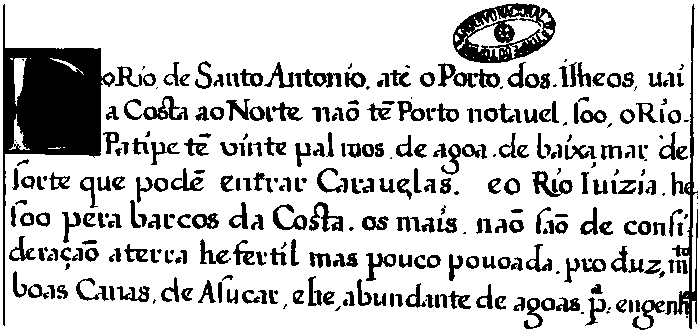 Do Rio de Santo Antonio, atè o Porto dos Ilheos, uai
a Costa ao Norte naõ tẽ Porto notauel, soo, o Rio
Patipe tẽ vinte palmos de agoa de baixa mar de
sorte que podẽ entrar Carauelas. e o Rio Iuizia he
soo pera barcos da Costa. os mais naõ saõ de consi
deraçaõ a terra he fertil mas pouco pouoada, produz, m.to
boas Canas, de Asucar, e he, abundante de agoas. p.a